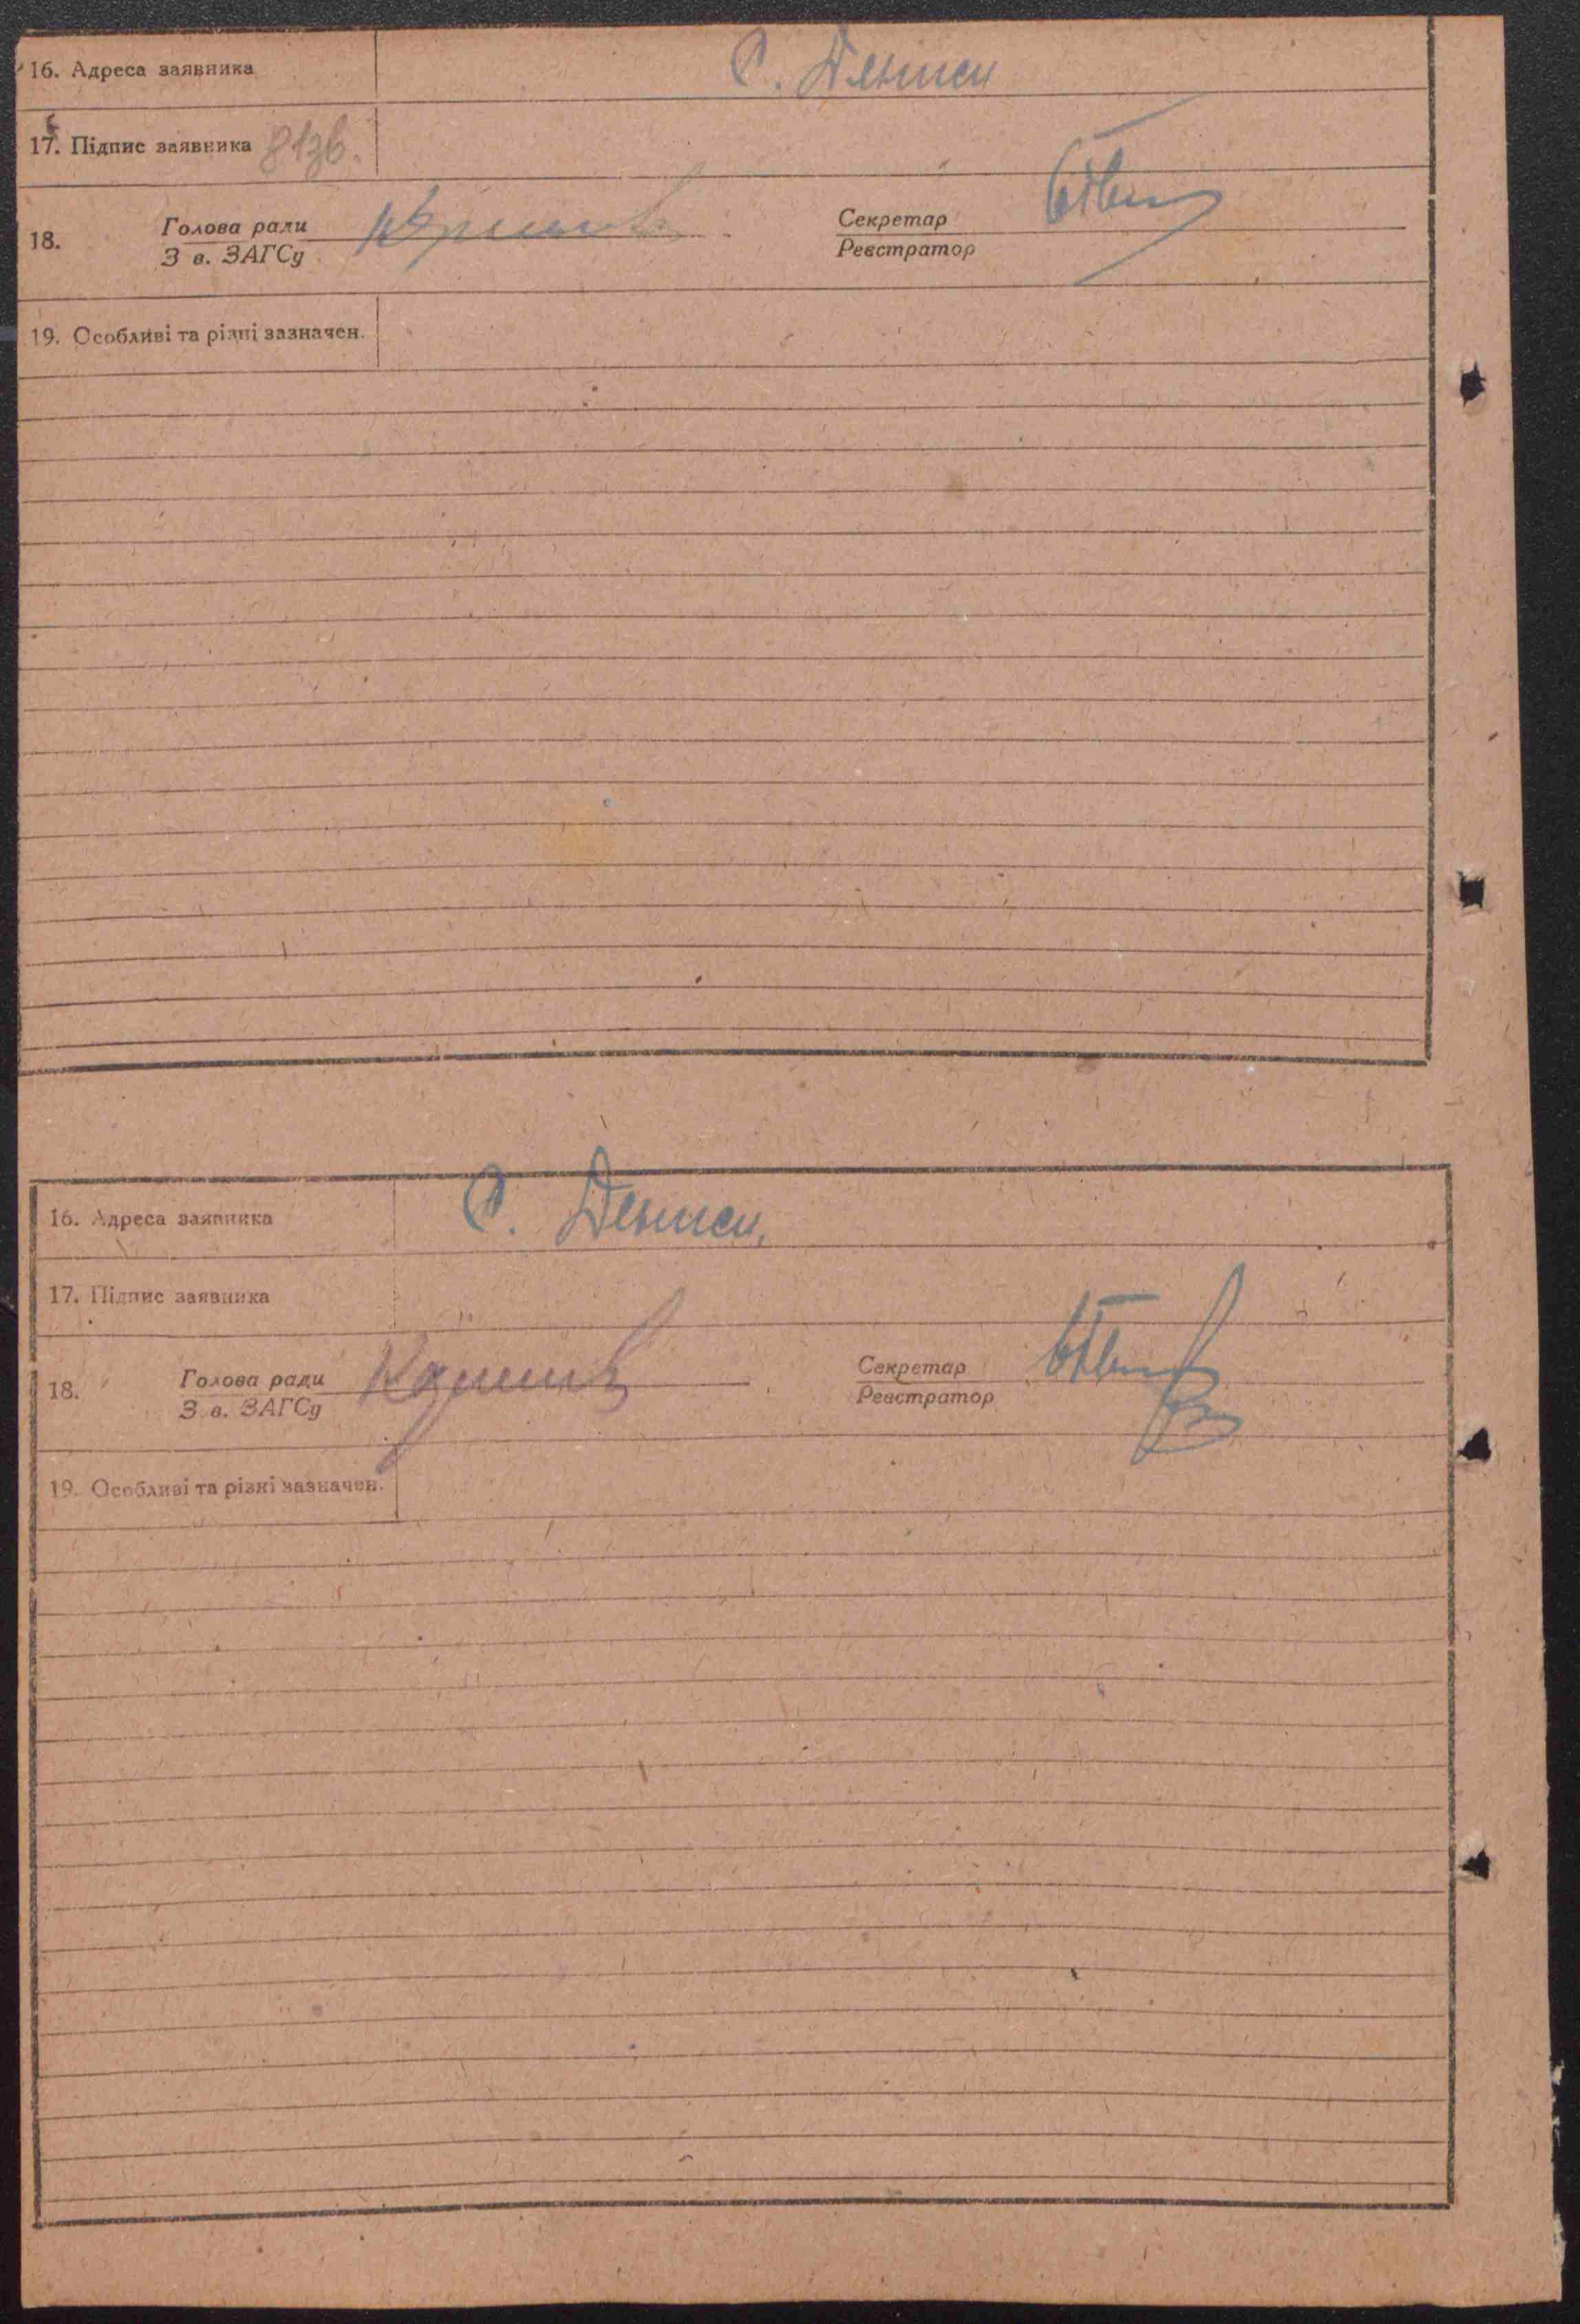 16. Адреса заявника С. Деньги
17. Підпис заявника 81зв.
18. Голова ради Секретар
З в. ЗАГСу Реєстратор
19. Особливі та різні зазначен.
16. Адреса заявника С. Деньги,
17. Підпис заявника
18. Голова ради Секретар
З в. ЗАГСу Реєстратор
19. Особливі та різні зазначен.